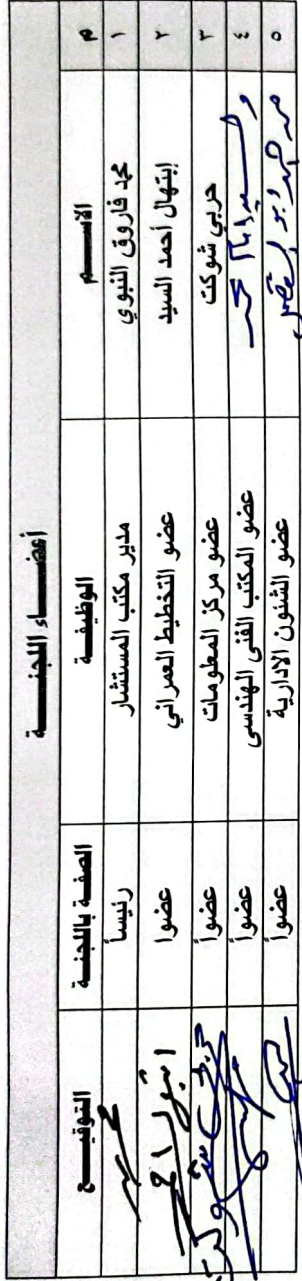 أعضـــاء اللجنـــة
م الأســـم الوظيفـــة الصفـة باللجنـة التوقيـــع
١ محمد فاروق النبوي مدير مكتب المستشار رئيساً
٢ إبتهال أحمد السيد عضو التخطيط العمراني عضوا ابتهال احمد
٣ حربي شوكت عضو مركز المعلومات عضواً حربى شوكت
٤ عضو المكتب الفنى الهندسى عضواً
٥ عضو الشئون الادارية عضواً